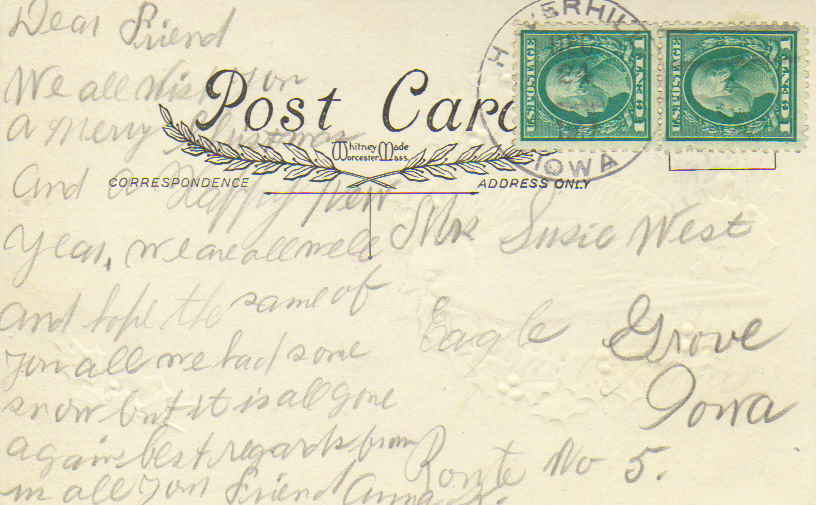 Dear Friend
We all Wish You
a Merry Christmas
and a Happy New
Year, we are all well
and hope the same of
you all we had some
snow but it is all gone
again best regards from
us all your Friend Anna
Post Card
Whitney Made
Worcester Mass.
CORRESPONDENCE
ADDRESS ONLY
HAVERHILL
DEC
IOWA
U.S. POSTAGE
1 CENT 1
U.S. POSTAGE
1 CENT 1
Mr Susie West
Eagle Grove
Iowa
Route No 5.